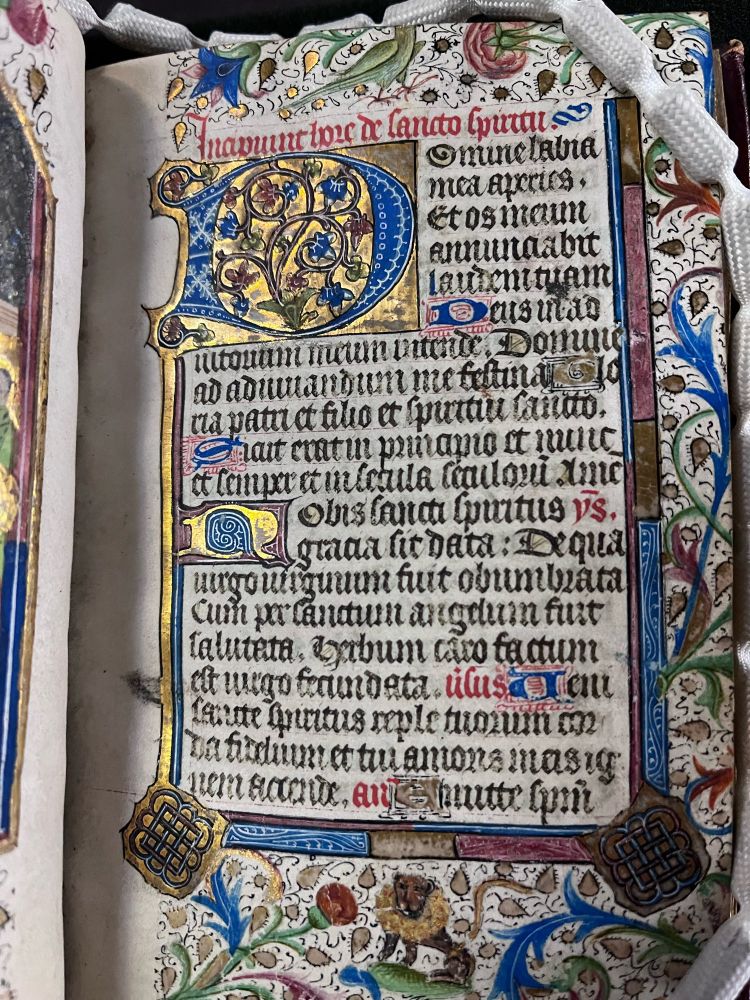 Incipiunt hore de sancto spiritu.
Domine labia
mea aperies.
Et os meum
annunciabit
laudem tuam
Deus in ad
iutorium meum intende. Domine
ad adiuuandum me festina Glo
ria patri et filio et spiritui sancto.
Sicut erat in principio et nunc
et semper et in secula seculorū Ame
Nobis sancti spiritus ym̄s.
gracia sit data : De qua
uirgo uirginum fuit obumbrata
Cum per sanctum angelum fuit
salutata. Verbum caro factum
est uirgo fecundata. ūsus Veni
sancte spiritus reple tuorum cor
da fidelium et tui amoris in eis ig
nem accende. an̄ Emitte spm̄